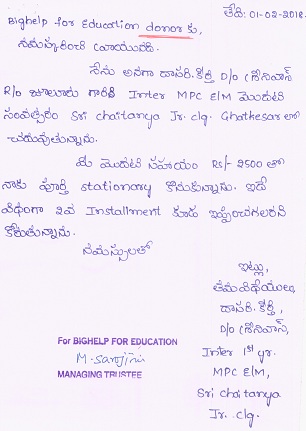 తేది: 01-02-2018.
Bighelp for Education donor కు,
నమస్కరించి వ్రాయునది.
నేను అనగా దాసరి. కీర్తి D/o శ్రీనివాస్
R/o జూలూరు గారికి Inter MPC E/M మొదటి
సంవత్సరం Sri chaitanya Jr. clg. Ghatkesar లో
చదువుతున్నాను.
మీ మొదటి సహాయం Rs/- 2500 తో
నాకు పూర్తి stationary కొనుకున్నాను. ఇదే
విధంగా 2వ Installment కూడ ఇప్పించగలరని
కోరుతున్నాను.
నమస్సులతో
ఇట్లు,
తమ విధేయులు,
దాసరి. కీర్తి,
D/o శ్రీనివాస్,
Inter 1st yr.
MPC E/M,
Sri Chaitanya
Jr. clg.
For BIGHELP FOR EDUCATION
M. Sarojini
MANAGING TRUSTEE